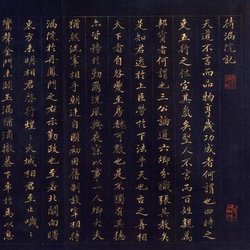 待漏院記
天道不言而品物亨歲功成者何謂也四時之
吏五行之佐宣其氣矣聖人不言而百姓親萬
邦寧者何謂也三公論道六卿分職張其教矣
是知君逸於上臣勞於下法乎天也古之善相
天下者自咎夔至房魏可數也是不獨有其德
亦皆務於勤爾況夙興夜寐以事一人卿大夫
猶然況宰相乎朝廷自國初因舊制設宰相待
漏院於丹鳳門之右示勤政也至若北闕向曙
東方未明相君啓行煌煌火城相君至止噦噦
鑾聲金門未闢玉漏猶滴撤蓋下車于焉以息